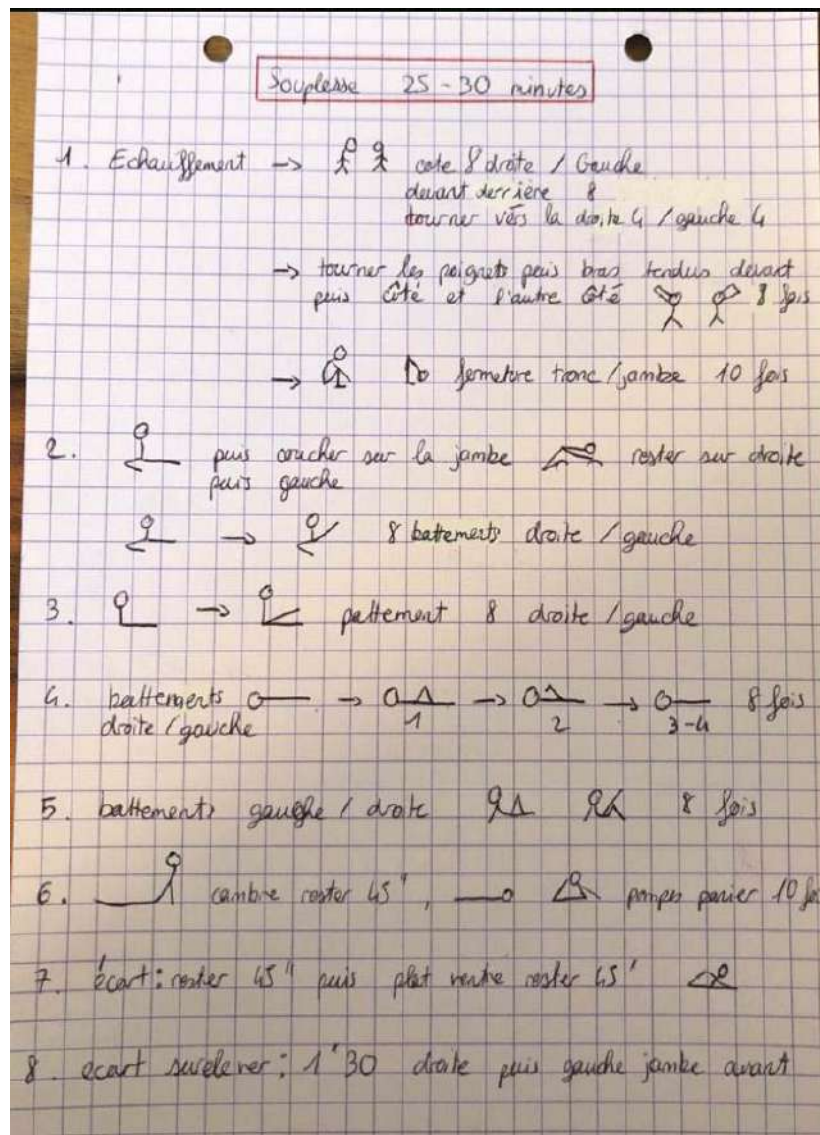 Souplesse 25-30 minutes
1. Echauffement → cote 8 droite / Gauche
devant derrière 8
tourner vers la droite 4 / gauche 4
→ tourner les poignets puis bras tendus devant
puis côté et l'autre côté 8 fois
→ fermeture tronc/jambe 10 fois
2. puis coucher sur la jambe rester sur droite
puis gauche
→ 8 battements droite / gauche
3. → battement 8 droite / gauche
4. battements → → → 8 fois
droite / gauche 1 2 3-4
5. battements gauche / droite 8 fois
6. cambre rester 45", pompes panier 10
7. écart : rester 45" puis plat ventre rester 45'
8. ecart surelever : 1'30 droite puis gauche jambe avant